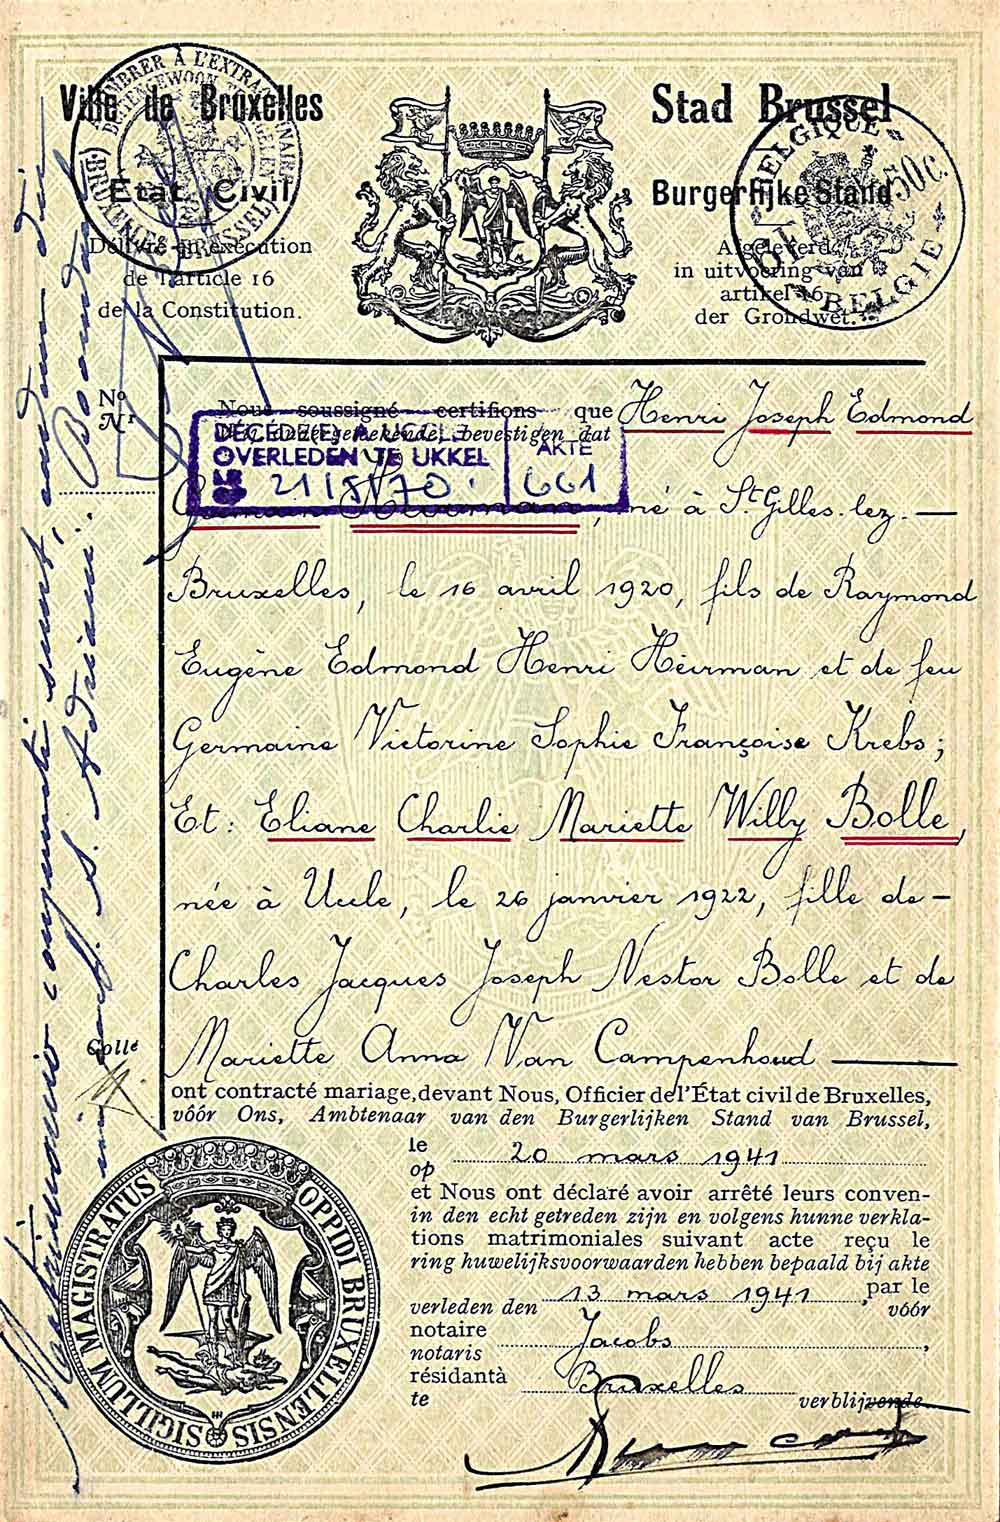 Ville de Bruxelles
État Civil
Délivré en exécution
de l'article 16
de la Constitution.
Stad Brussel
Burgerlijke Stand
Afgeleverd
in uitvoering van
artikel 16
der Grondwet.
TIMBRER À L'EXTRAORDINAIRE
BRUXELLES BRUSSEL
BELGIQUE
50c.
BELGIË
Nº
Nr
Nous soussigné certifions que Henri Joseph Edmond
bevestigen dat
DÉCÉDÉ(E) A UCCLE
OVERLEDEN TE UKKEL
AKTE
661
Germain Heirman, né à St Gilles-lez-
Bruxelles, le 16 avril 1920, fils de Raymond
Eugène Edmond Henri Heirman et de feu
Germaine Victorine Sophie Françoise Krebs;
Et: Eliane Charlie Mariette Willy Bolle,
née à Uccle, le 26 janvier 1922, fille de
Charles Jacques Joseph Nestor Bolle et de
Mariette Anna Van Campenhoud
Collé
ont contracté mariage, devant Nous, Officier de l'État civil de Bruxelles,
vóór Ons, Ambtenaar van den Burgerlijken Stand van Brussel,
le
op 20 mars 1941
et Nous ont déclaré avoir arrêté leurs conven-
in den echt getreden zijn en volgens hunne verkla-
tions matrimoniales suivant acte reçu le
ring huwelijksvoorwaarden hebben bepaald bij akte
verleden den 13 mars 1941, par le
vóór
notaire
notaris Jacobs,
résidant à
te Bruxelles verblijvende.
SIGILLUM MAGISTRATUS OPPIDI BRUXELLENSIS
Matrimonio conjuncti sunt, eadem die
S. Adriani.